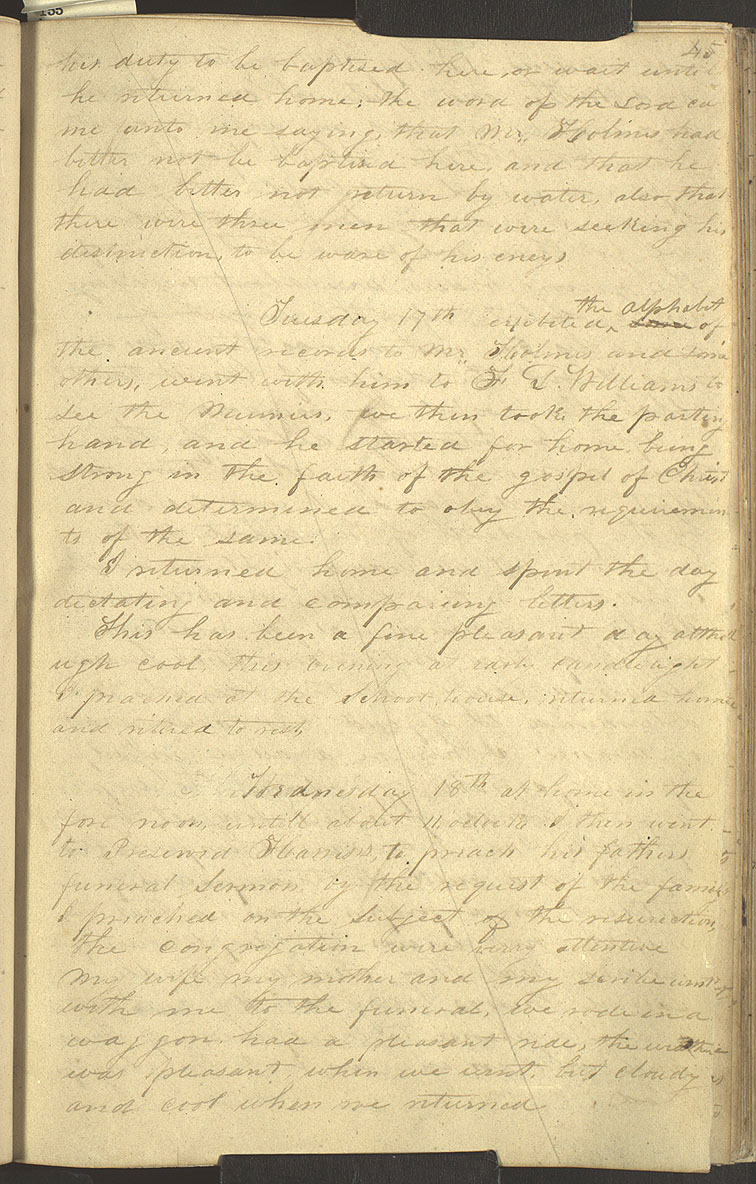 155
45
his duty to be baptised here, or wait until
he returned home; the word of the Lord ca
me unto me saying, that Mr. Holmes had
better not be baptised here, and that he
had better not return by water, also that
there were three men that were seeking his
distruction, to be ware of his eneys
the alphabet
Tuesday 17th exibited some of
the ancient records to Mr. Holmes and some
others, went with him to F G Williams to
see the Mumies, we then took the parting
hand, and he started for home, being
strong in the faith of the gospel of Christ
and determined to obey the requiremen
ts of the same.
I returned home and spent the day
dictating and comparing letters.
This has been a fine pleasant day altho
ugh cool, this evening at early candlelight
I preached at the School house, returned home
and retired to rest,
Wednesday 18th at home in the
fore noon, untill about 11 oclock I then went
to Preserved Harris's, to preach his fathers
funeral Sermon, by the request of the family
I preached on the subject of the resurection,
the congregation were verry attentive
My wife my mother and my scribe went
with me to the funeral, we rode in a
waggon, had a pleasant ride, the weather
was pleasant, when we went, but cloudy
and cool when we returned